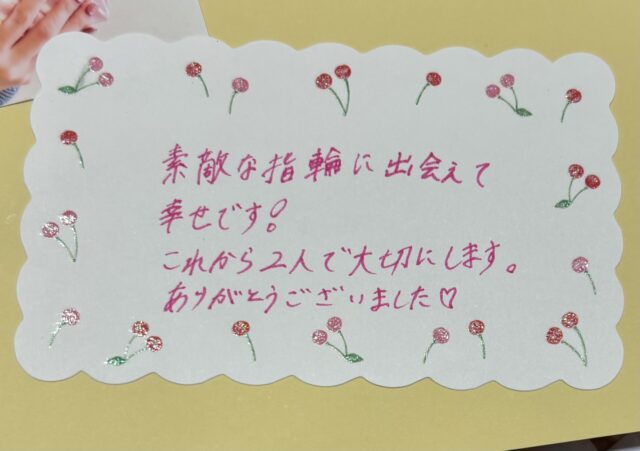 素敵な指輪に出会えて
幸せです!
これから2人で大切にします。
ありがとうございました♡